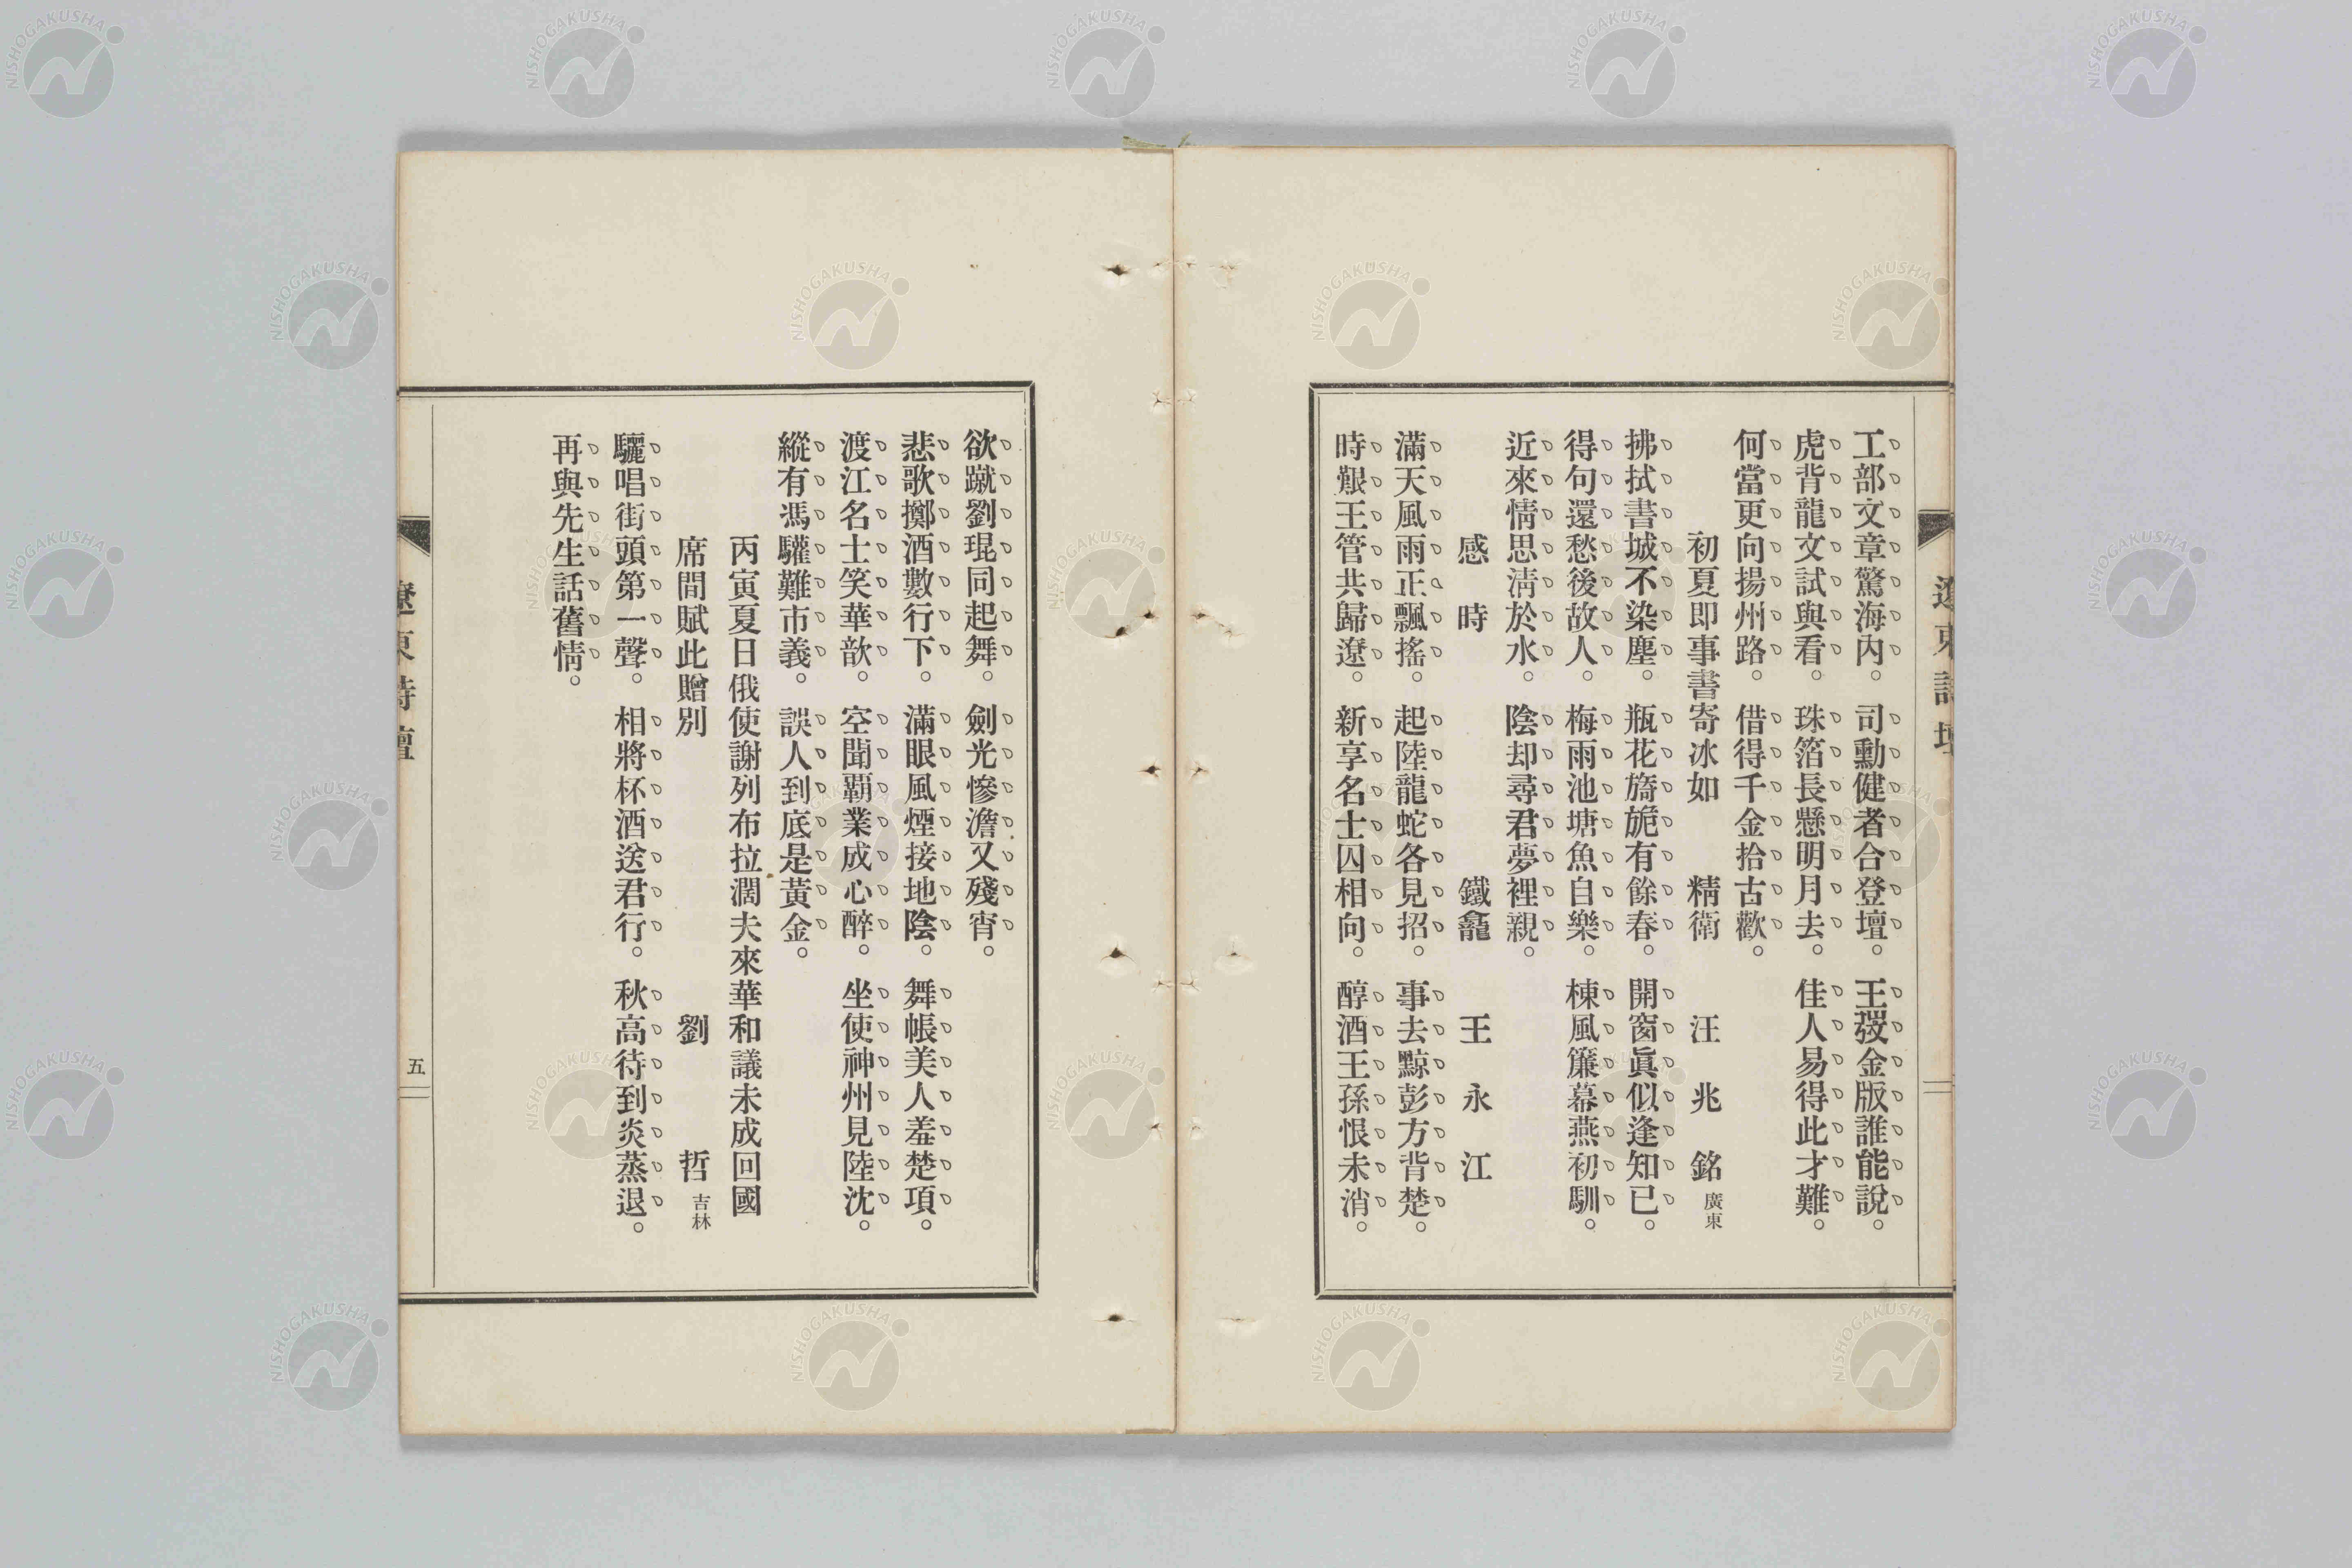 遼東詩壇
工部文章驚海內。司勳健者合登壇。王弢金版誰能說。
虎背龍文試與看。珠箔長懸明月去。佳人易得此才難。
何當更向揚州路。借得千金拾古歡。
初夏即事書寄冰如 精衛 汪兆銘 廣東
拂拭書城不染塵。瓶花旖旎有餘春。開窗眞似逢知已。
得句還愁後故人。梅雨池塘魚自樂。棟風簾幕燕初馴。
近來情思淸於水。陰却尋君夢裡親。
感時 鐵龕 王永江
滿天風雨正飄搖。起陸龍蛇各見招。事去黥彭方背楚。
時艱王管共歸遼。新享名士囚相向。醇酒王孫恨未消。
欲蹴劉琨同起舞。劍光慘澹又殘宵。
悲歌擲酒數行下。滿眼風煙接地陰。舞帳美人羞楚項。
渡江名士笑華歆。空聞覇業成心醉。坐使神州見陸沈。
縱有馮驩難市義。誤人到底是黃金。
丙寅夏日俄使謝列布拉濶夫來華和議未成回國
席間賦此贈別 劉哲 吉林
驪唱街頭第一聲。相將杯酒送君行。秋高待到炎蒸退。
再與先生話舊情。
遼東詩壇
五
NISHOGAKUSHA